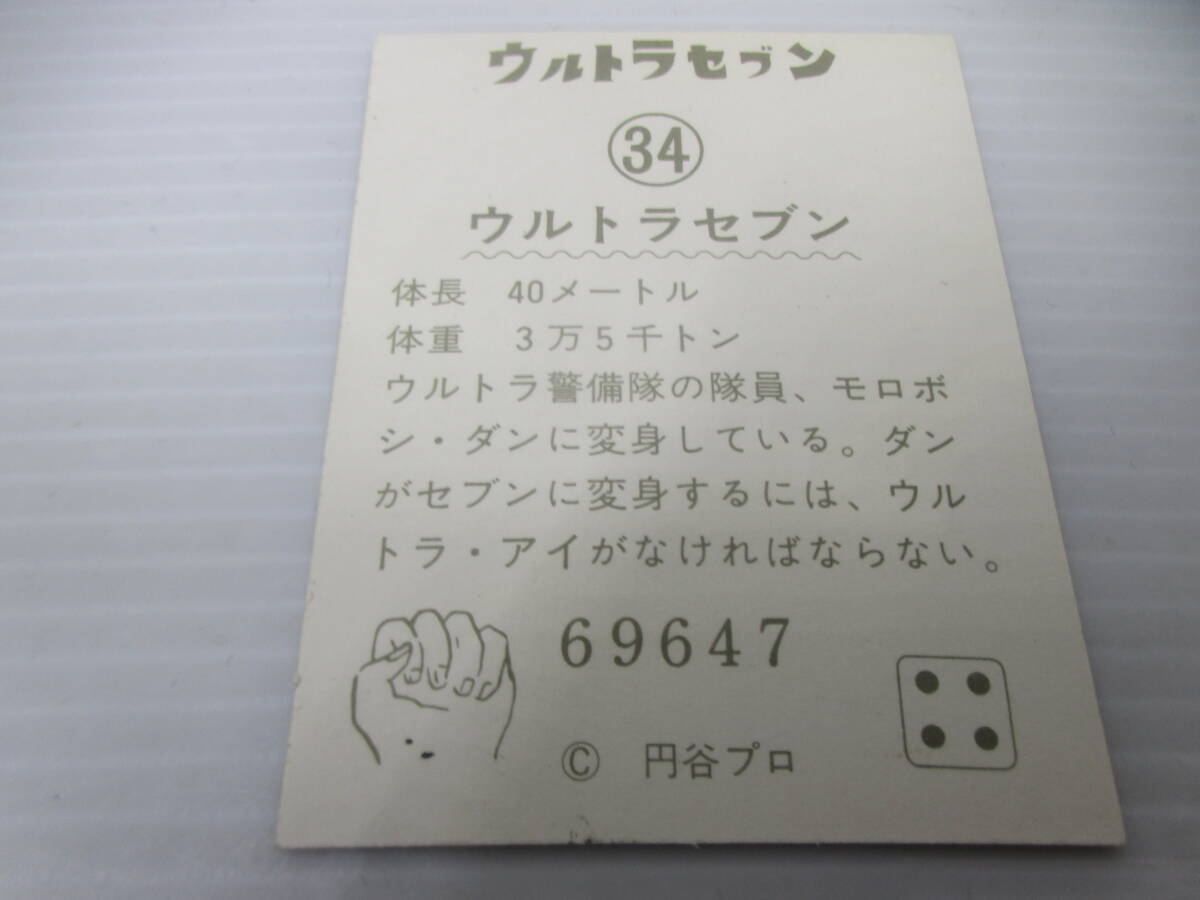 ウルトラセブン
34
ウルトラセブン
体長 40メートル
体重 3万5千トン
ウルトラ警備隊の隊員、モロボ
シ・ダンに変身している。ダン
がセブンに変身するには、ウル
トラ・アイがなければならない。
69647
© 円谷プロ